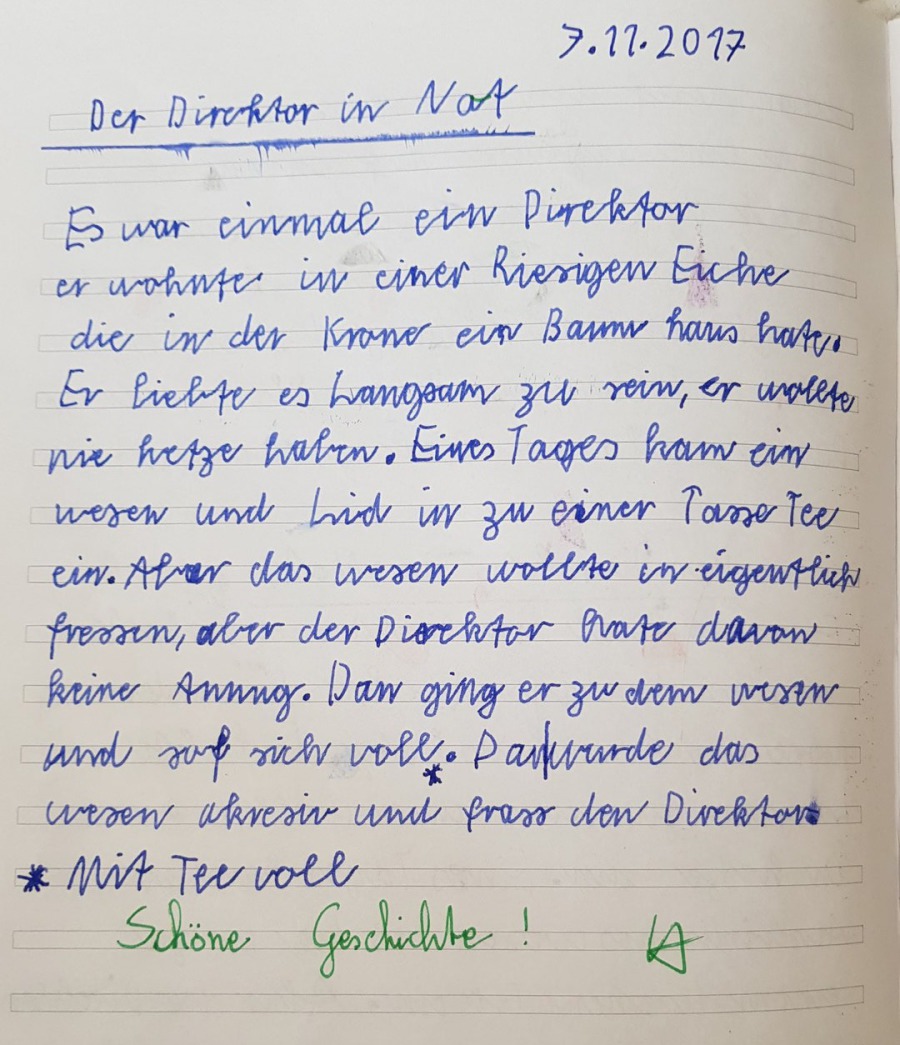 7.11.2017
Der Direktor in Not
Es war einmal ein Direktor
er wohnte in einer Riesigen Eiche
die in der Krone ein Baum haus hate.
Er liebte es Langsam zu sein, er wollte
nie hetze haben. Eines Tages kam ein
wesen und Lid in zu einer Tasse Tee
ein. Aber das wesen wollte in eigentlich
fressen, aber der Direktor hate davon
keine Annug. Dan ging er zu dem wesen
und sof sich voll.* Dan wurde das
wesen akresiv und frass den Direktor.
* Mit Tee voll
Schöne Geschichte !